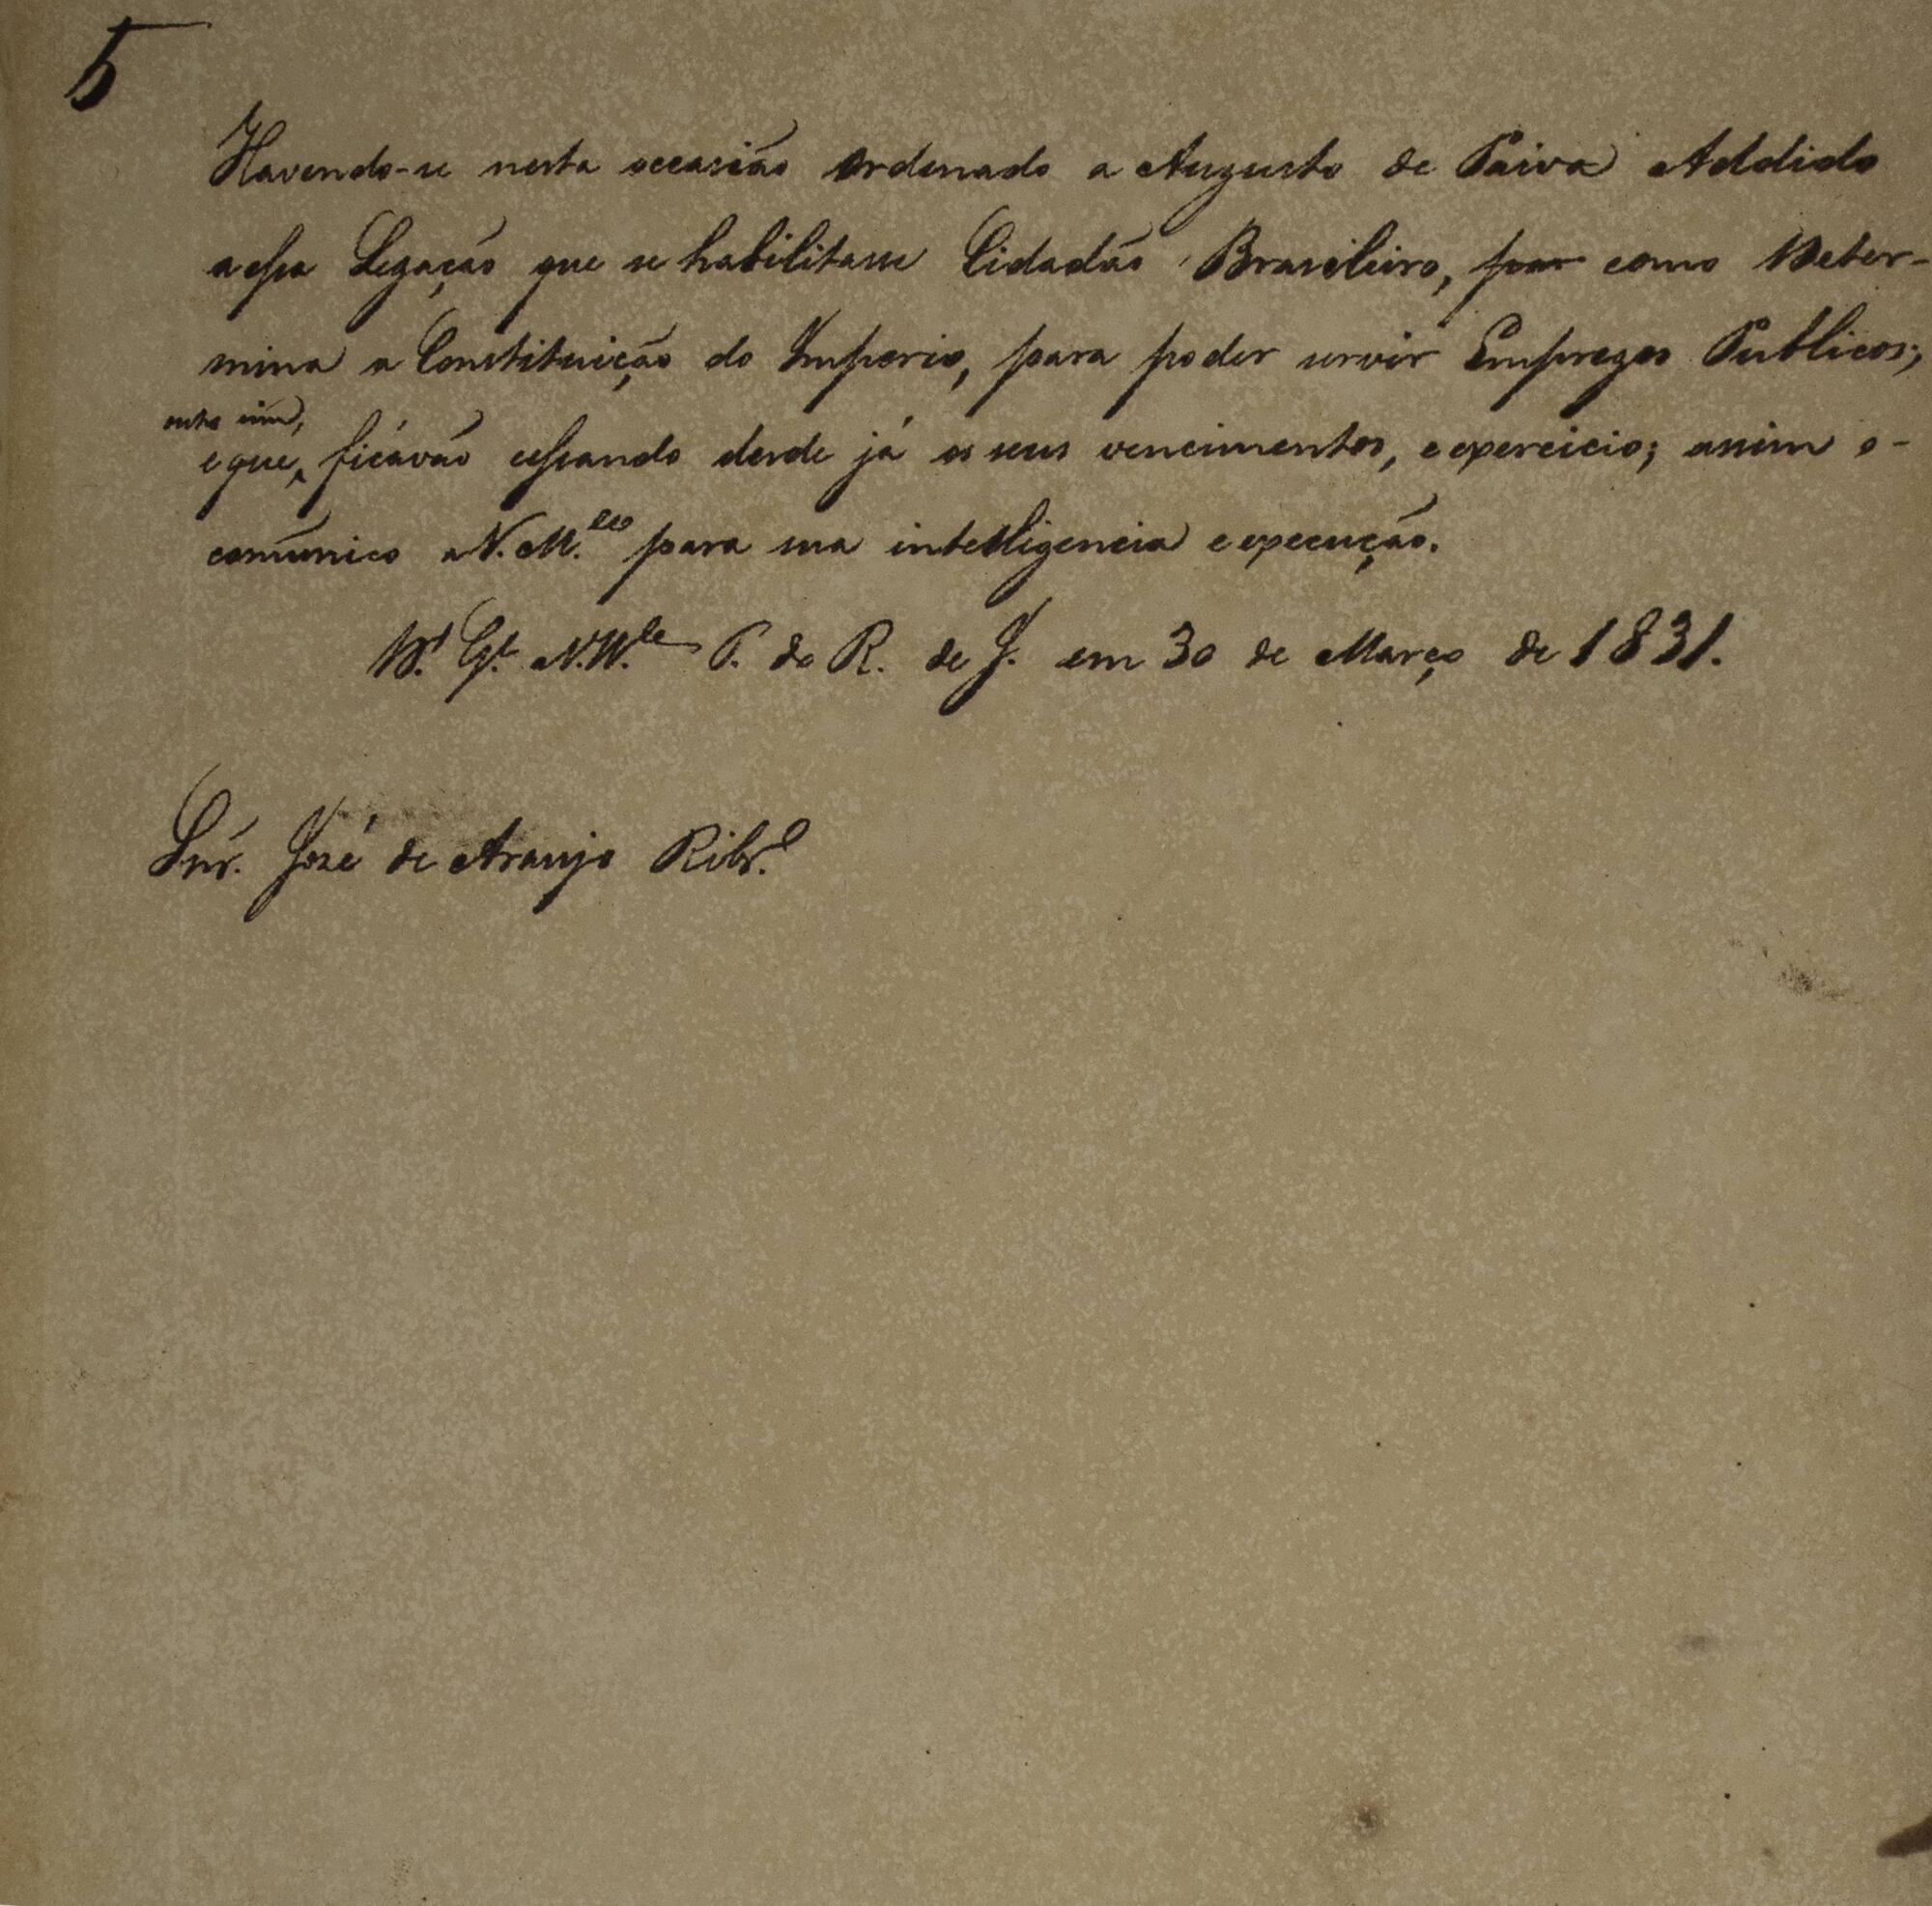 5
Havendo-se nesta occasião Ordenado a Augusto de Paiva Addido
a essa Legação que se habilitasse Cidadão Brasileiro, por como Deter-
mina a Constituição do Imperio, para poder servir Empregos Publicos;
outro sim,
e que, ficávão cessando desde já os seus vencimentos, e exercicio; assim o-
comúnico a V. M.ce para sua intelligencia e execução.
D.s G.e a V. M.ce P. do R. de J. em 30 de Março de 1831.
Snr. José de Araujo Ribr.o